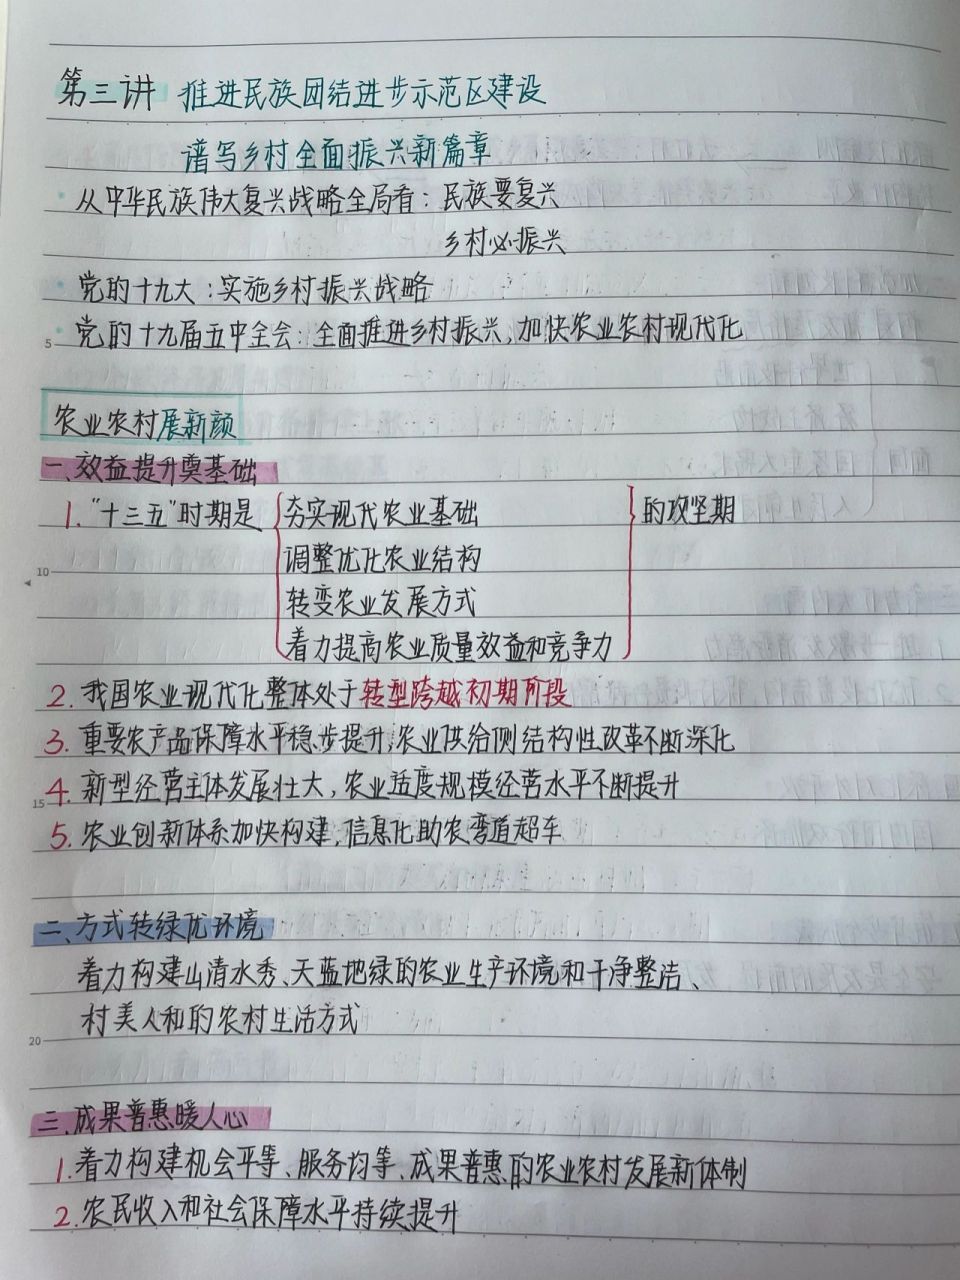 第三讲 推进民族团结进步示范区建设
谱写乡村全面振兴新篇章
从中华民族伟大复兴战略全局看：民族要复兴
乡村必振兴
党的十九大：实施乡村振兴战略
党的十九届五中全会：全面推进乡村振兴，加快农业农村现代化
5
农业农村展新颜
一、效益提升奠基础
1. “十三五”时期是 { 夯实现代农业基础 } 的攻坚期
调整优化农业结构
10
转变农业发展方式
着力提高农业质量效益和竞争力
2. 我国农业现代化整体处于转型跨越初期阶段
3. 重要农产品保障水平稳步提升，农业供给侧结构性改革不断深化
4. 新型经营主体发展壮大，农业适度规模经营水平不断提升
15
5. 农业创新体系加快构建，信息化助农弯道超车
二、方式转绿优环境
着力构建山清水秀、天蓝地绿的农业生产环境和干净整洁、
村美人和的农村生活方式
20
三、成果普惠暖人心
1. 着力构建机会平等、服务均等、成果普惠的农业农村发展新体制
2. 农民收入和社会保障水平持续提升